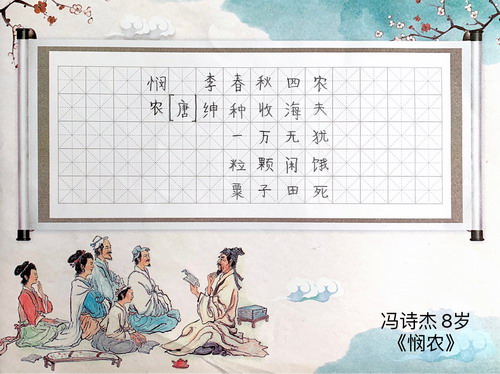 悯农
[唐]
李绅
春种一粒粟
秋收万颗子
四海无闲田
农夫犹饿死
冯诗杰 8岁
《悯农》